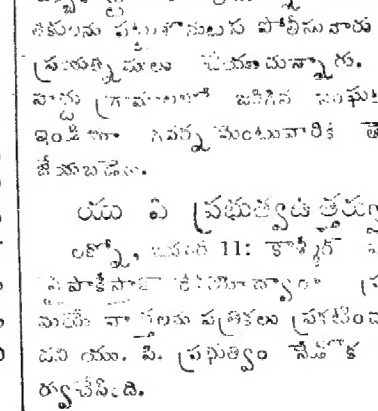 తికులను పట్టుకొనులకు పోలీసు వారు
ప్రయత్నములు చేయుచున్నారు.
హద్దు గ్రామాలలో జరిగిన సంఘట
ఇండియా గవర్న మెంటువారికి తె
జేయబడెను.
యు పి ప్రభుత్వఉ త్తరు
లక్నో, జనవరి 11: కాశ్మీర్
పై పాకిస్థా
వార్తలను పత్రికలు ప్రకటించ
దని యు. పి. ప్రభుత్వం నేడొక
ర్వుచేసింది.